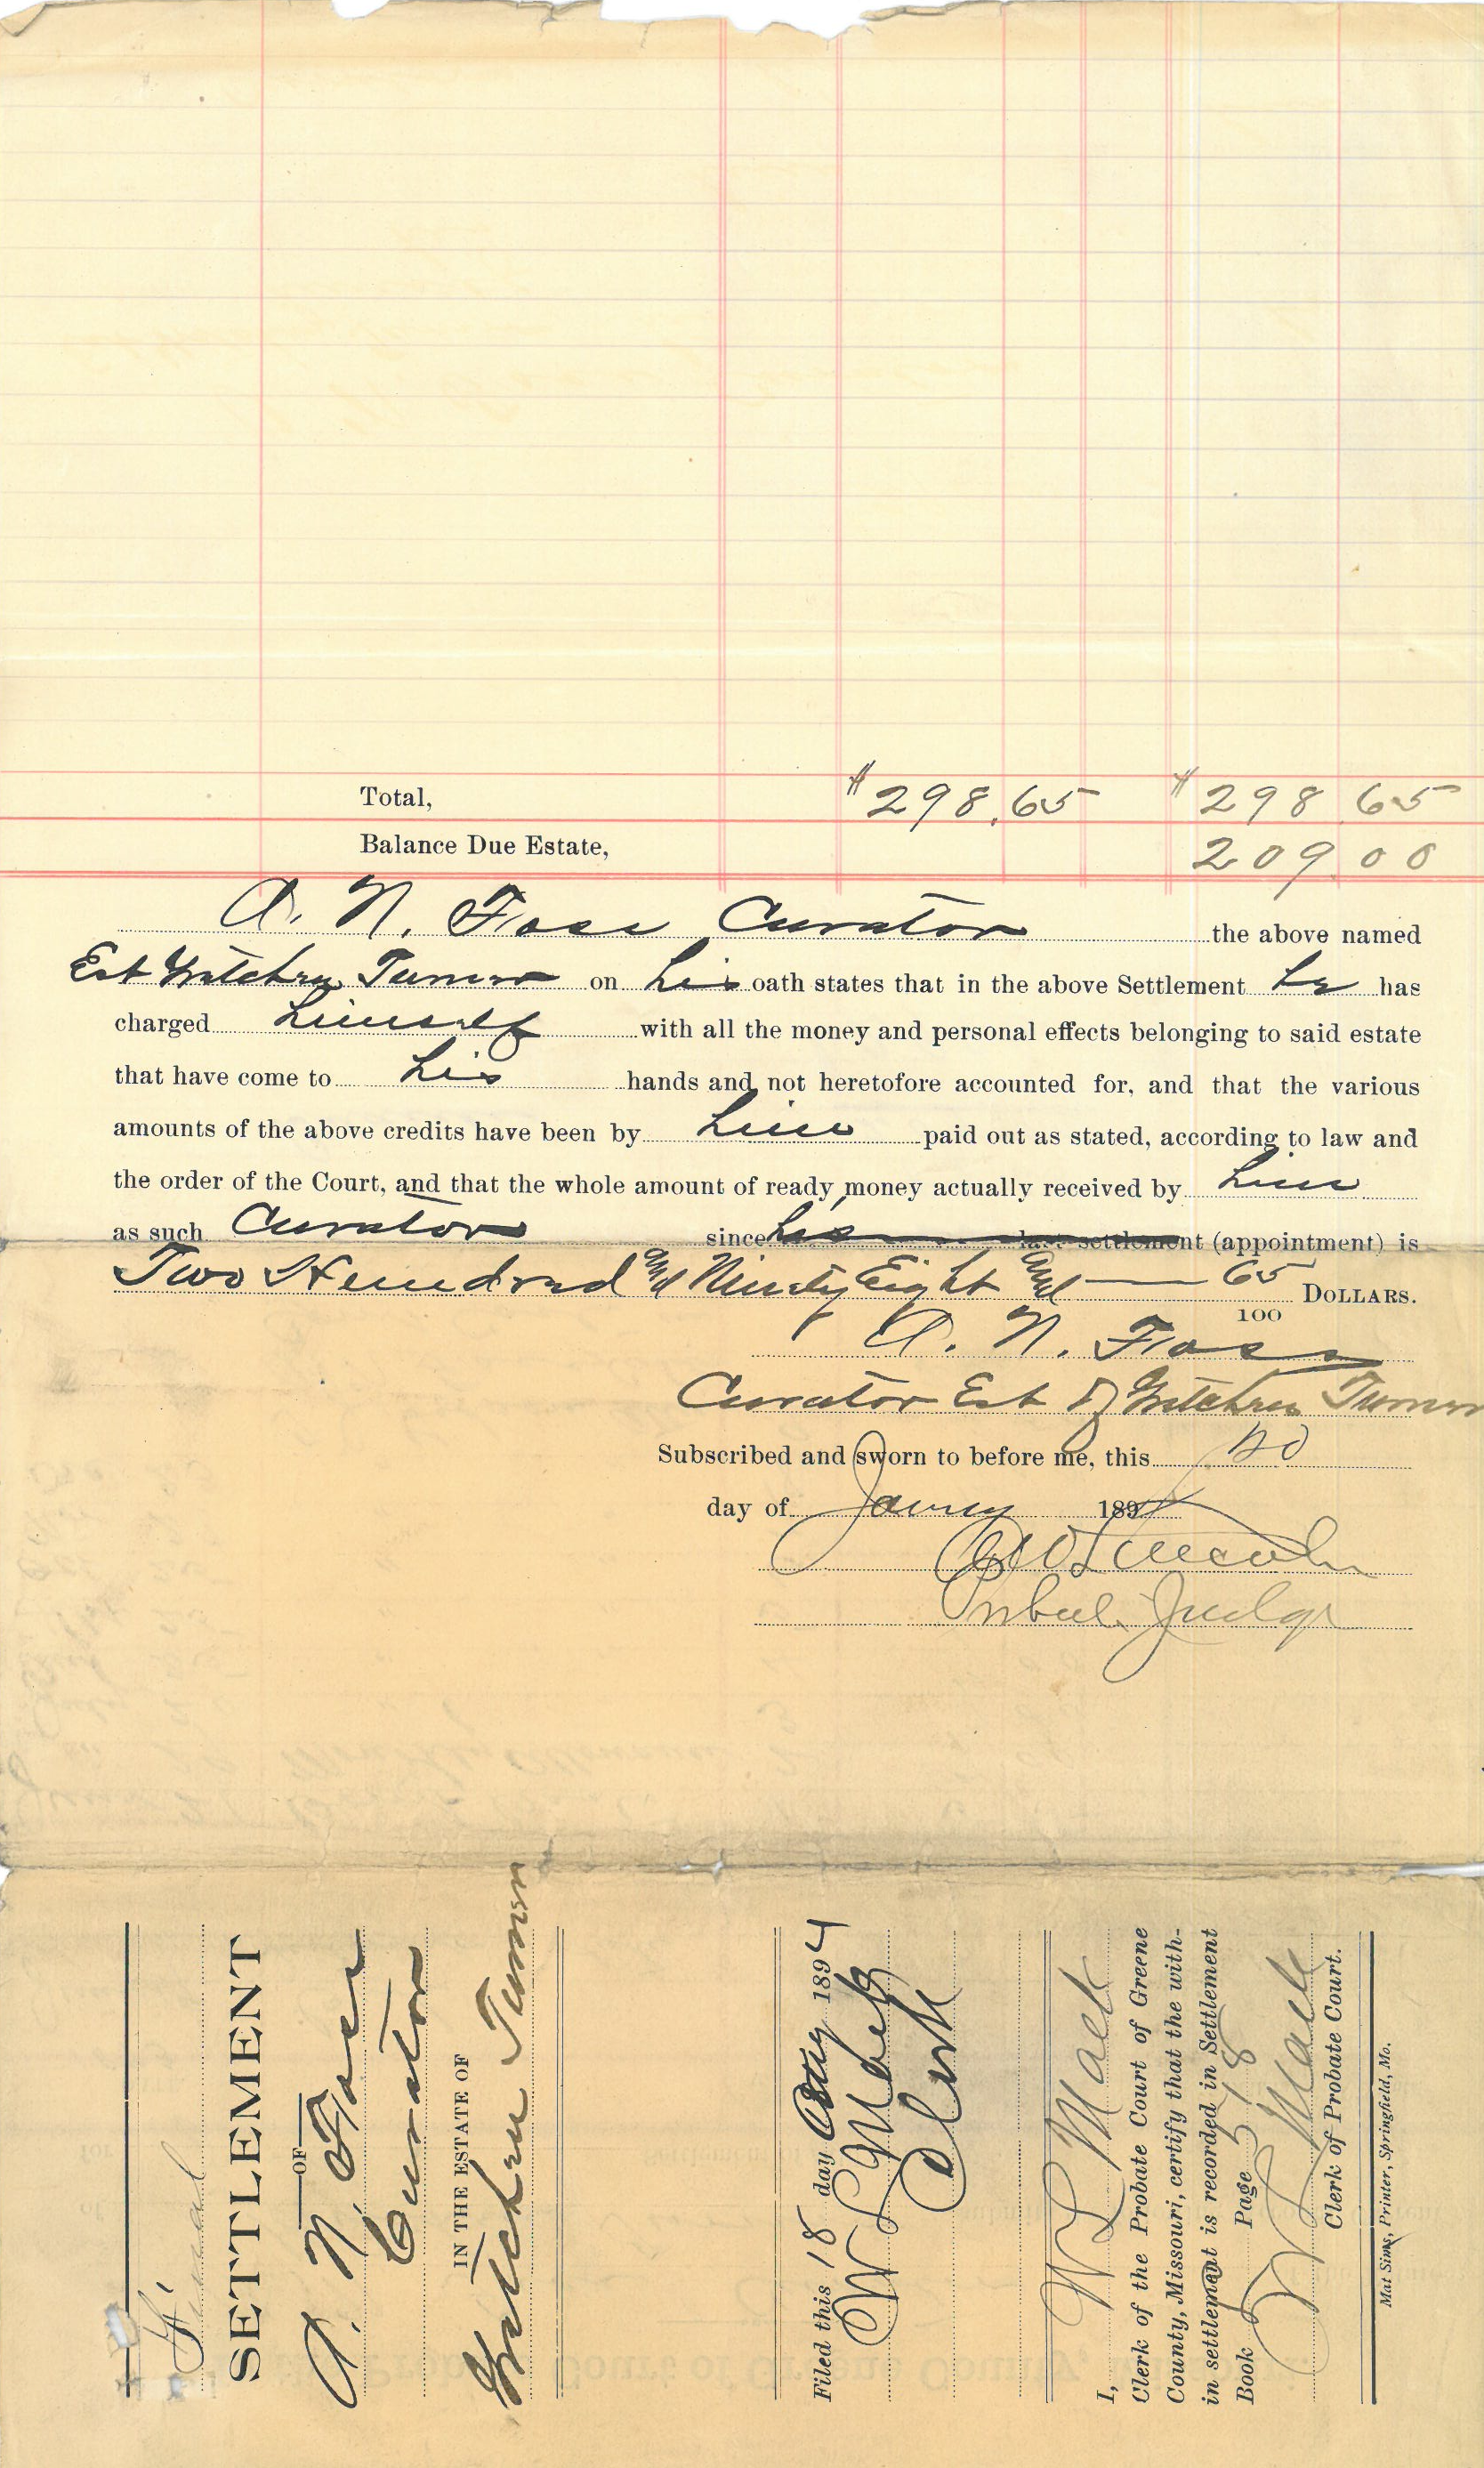 Total, $298.65 $298 65
Balance Due Estate, 209.00
A. N. Foss Curator the above named
Est Gretchen Turner on his oath states that in the above Settlement he has
charged himself with all the money and personal effects belonging to said estate
that have come to his hands and not heretofore accounted for, and that the various
amounts of the above credits have been by him paid out as stated, according to law and
the order of the Court, and that the whole amount of ready money actually received by him
as such Curator since his last settlement (appointment) is
Two Hundred and Ninety Eight and 65
100 DOLLARS.
A. N. Foss
Curator Est of Gretchen Turner
Subscribed and sworn to before me, this
day of 189
Lincoln
Judge
Final
SETTLEMENT
OF
A. N. Foss
Curator
IN THE ESTATE OF
Gretchen Turner
Filed this 18 day Aug 1894
W L Mack
Clerk
I, W L Mack
Clerk of the Probate Court of Greene
County, Missouri, certify that the with-
in settlement is recorded in Settlement
Book Page 518
W L Mack
Clerk of Probate Court.
Mat Sims, Printer, Springfield, Mo.